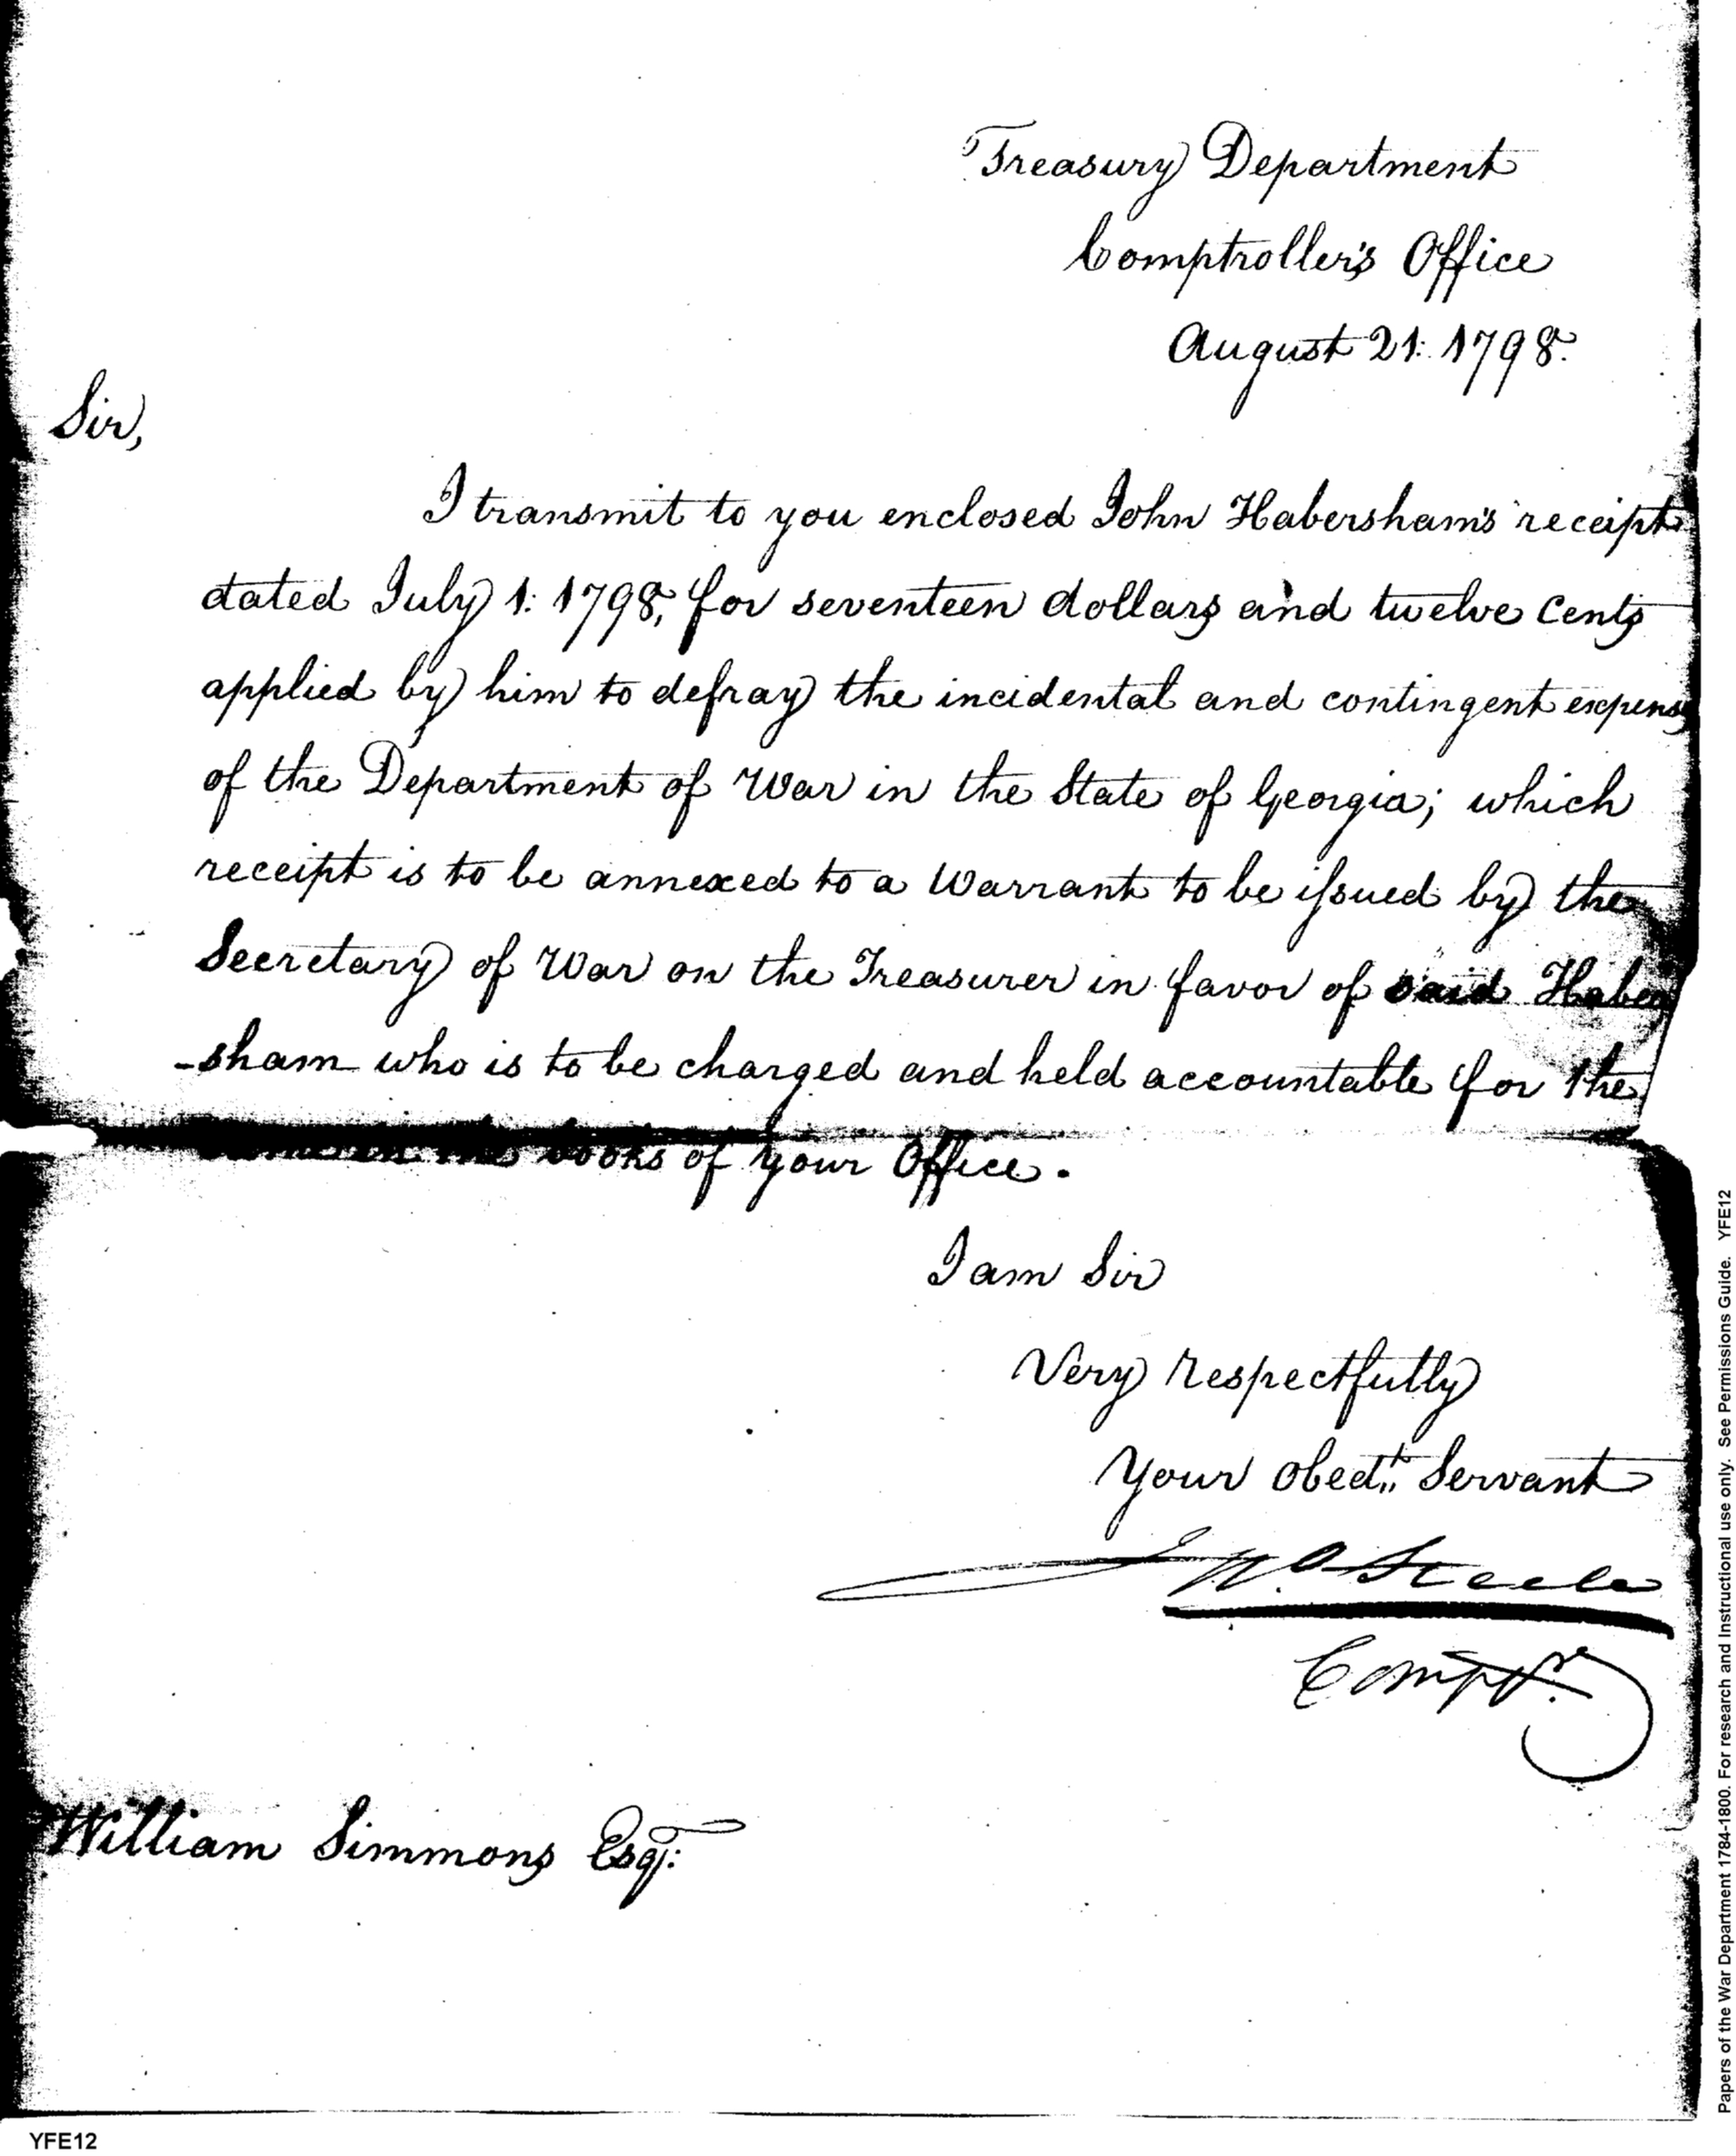 Treasury Department
Comptroller's Office
August 21: 1798.
Sir,
I transmit to you enclosed John Habersham's receipt
dated July 1: 1798, for seventeen dollars and twelve Cents
applied by him to defray the incidental and contingent expens
of the Department of War in the State of Georgia; which
receipt is to be annexed to a Warrant to be issued by the
Secretary of War on the Treasurer in favor of said Haber
-sham who is to be charged and held accountable for the
in the books of your Office.
I am Sir
Very respectfully
Your obedt. Servant
Jno. Steele
Compr.
William Simmons Esqr:
YFE12
Papers of the War Department 1784-1800. For research and Instructional use only. See Permissions Guide. YFE12